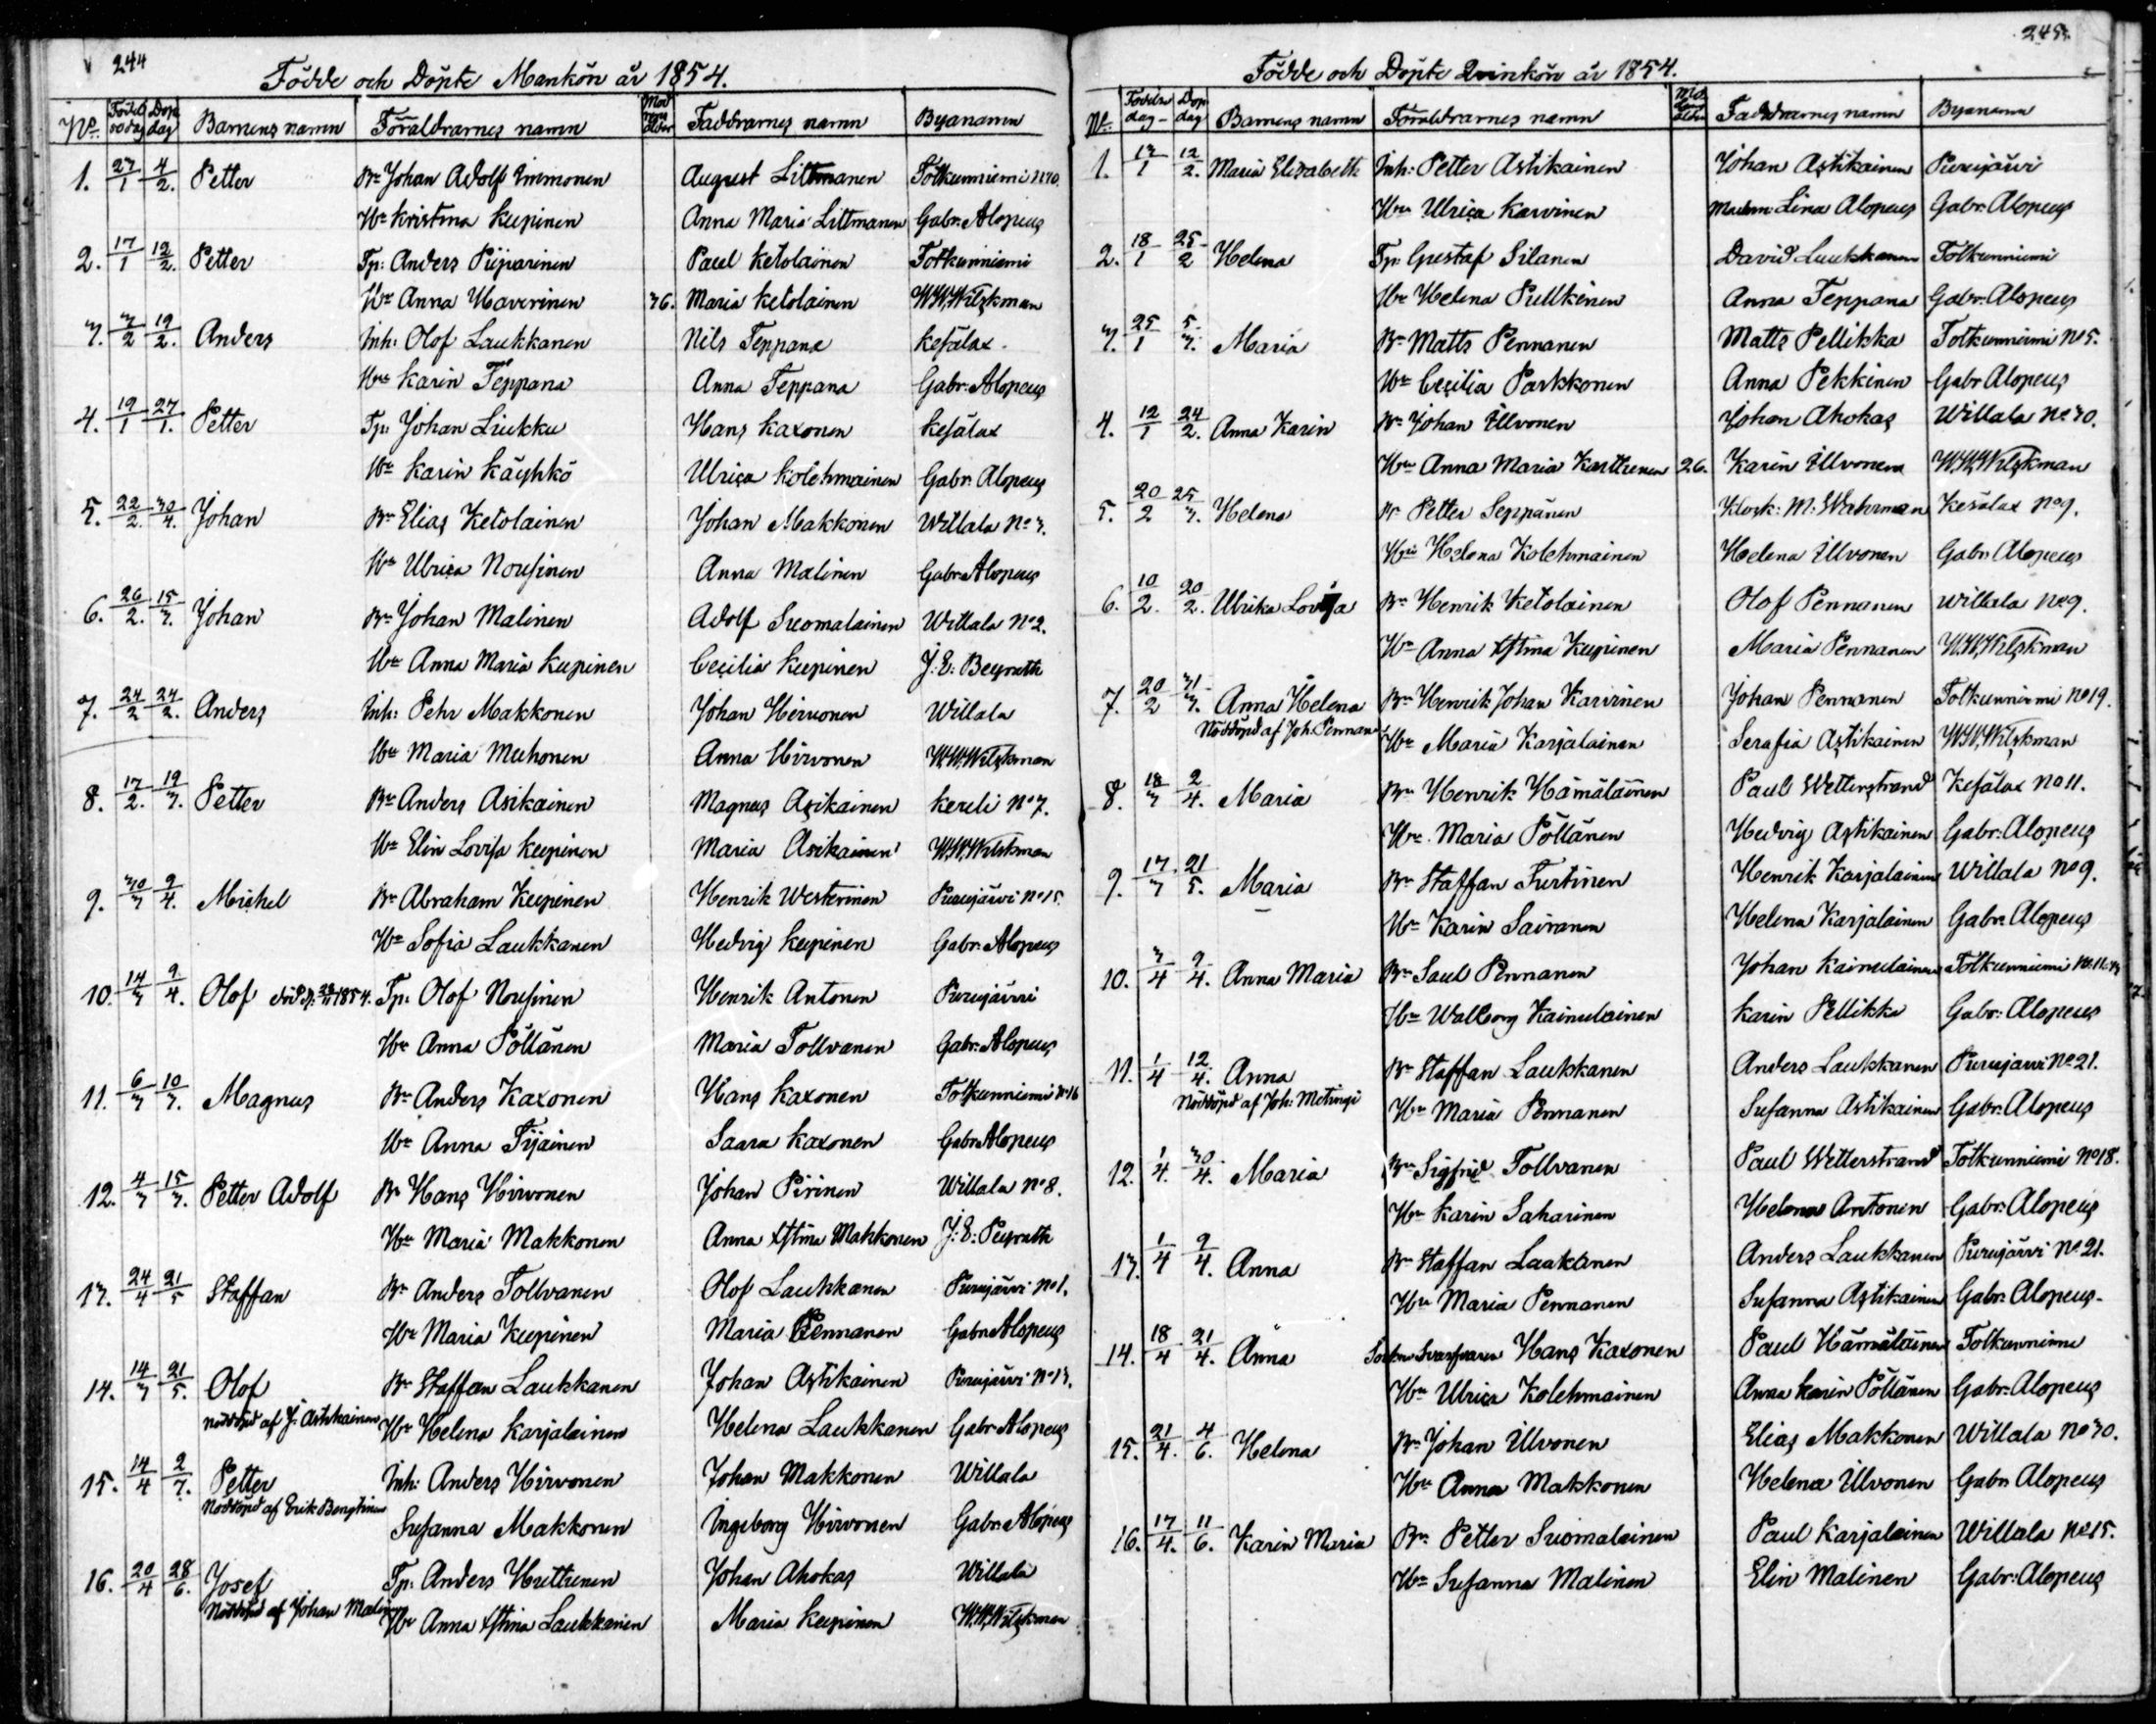 244
Födde och Döpte Mankön år 1854.
No. Födelsedag Dopdag Barnens namn Föräldrarnes namn Moderns ålder Faddrarnes namn Byanamn
1. 27/1 4/2. Petter Bn Johan Adolf Immonen August Littmanen Totkunniemi N:o 10.
Hu Kristina Kupinen Anna Maria Littmanen Gabr: Alopeus
2. 17/1 12/2. Petter Tp: Anders Piiparinen Paul Ketolainen Totkunniemi
Hu Anna Haverinen 36. Maria Ketolainen W.W. Wilskman
3. 3/2 19/2. Anders Inh: Olof Laukkanen Nils Teppana Kesälax
Hu Karin Teppana Anna Teppana Gabr: Alopeus
4. 19/1 27/1. Petter Tp: Johan Liukku Hans Kaxonen Kesälax
Hu Karin Käyhkö Ulrica Kolehmainen Gabr: Alopeus
5. 22/2. 30/4. Johan Bn Elias Ketolainen Johan Makkonen Willala No 3.
Hu Ulrica Nousinen Anna Malinen Gabr: Alopeus
6. 26/2. 15/3. Johan Bn Johan Malinen Adolf Suomalainen Willala No 2.
Hu Anna Maria Kupinen Cecilia Kupinen J: E: Beyrath
7. 24/2 24/2. Anders Inh: Pehr Makkonen Johan Hirvonen Willala
Hu Maria Muhonen Anna Hirvonen W.W. Wilskman
8. 17/2. 19/3. Petter Bn Anders Asikainen Magnus Asikainen Kereli No 7.
Hu Elin Lovisa Kupinen Maria Asikainen W.W. Wilskman
9. 30/3 9/4. Michel Bn Abraham Kupinen Henrik Westerinen Purujärvi No 15.
Hu Sofia Laukkanen Hedvig Kupinen Gabr: Alopeus
10. 14/3 9/4. Olof död d: 28/11 1854. Tp: Olof Nousinen Henrik Antonen Purujärvi
Hu Anna Pöllänen Maria Tollvanen Gabr: Alopeus
11. 6/3 10/3. Magnus Bn Anders Kaxonen Hans Kaxonen Totkunniemi No 16
Hu Anna Tijainen Saara Kaxonen Gabr: Alopeus
12. 4/3 15/3. Petter Adolf Bn Hans Hirvonen Johan Pirinen Willala No 8.
Hu Maria Makkonen Anna Xstina Makkonen J: E: Peyrath
13. 24/4 21/5 Staffan Bn Anders Tollvanen Olof Laukkanen Purujärvi No 1.
Hu Maria Kupinen Maria Pennanen Gabr: Alopeus
14. 14/3 21/5. Olof Bn Staffan Laukkanen Johan Astikainen Purujärvi No 13.
nöddöpd af J: Astikainen Hu Helena Karjalainen Helena Laukkanen Gabr: Alopeus
15. 14/4 2/7. Petter Inh: Anders Hirvonen Johan Makkonen Willala
Nöddöpd af Erik Bengtinen Susanna Makkonen Ingeborg Hirvonen Gabr: Alopeus
16. 20/4 28/6. Josef Tp: Anders Huttunen Johan Ahokas Willala
Nöddöpd af Johan Malinen Hu Anna Xstina Laukkanen Maria Kupinen W.W. Wilskman
245.
Födde och Döpte Qvinkön år 1854.
No. Födelsedag Dopdag Barnens namn Föräldrarnes namn Moderns ålder Faddrarnes namn Byanamn
1. 13/1 12/2. Maria Elisabeth Inh: Petter Astikainen Johan Astikainen Purujärvi
Hu Ulrica Karvinen Madem: Lina Alopeus Gabr: Alopeus
2. 18/1 25/2 Helena Tp: Gustaf Silanen David Luukkanen Totkunniemi
Hu Helena Pullkinen Anna Teppana Gabr: Alopeus
3. 25/1 5/3. Maria Bn Matts Pennanen Matts Pellikka Totkunniemi No 5.
Hu Cecilia Parkkonen Anna Pekkinen Gabr Alopeus
4. 12/1 24/2. Anna Karin Bn Johan Illvonen Johan Ahokas Willala No 30.
Hu Anna Maria Karttunen 26. Karin Illvonen W.W. Wilskman
5. 20/2 25/3. Helena Bn Petter Seppänen Klock: M: Wahrman Kesälax No 9.
Hu Helena Kolehmainen Helena Illvonen Gabr Alopeus
6. 10/2. 20/2. Ulrika Lovisa Bn Henrik Ketolainen Olof Pennanen Willala No 9.
Hu Anna Xstina Kupinen Maria Pennanen W.W. Wilskman
7. 20/2 31/3. Anna Helena Bn Henrik Johan Karvinen Johan Pennanen Totkunniemi No 19.
Nöddöpd af Joh. Pennanen Hu Maria Karjalainen Serafia Astikainen W.W. Wilskman
8. 18/3 2/4. Maria Bn Henrik Hämäläinen Paul Wetterstrand Kesälax No 11.
Hu Maria Pöllänen Hedvig Astikainen Gabr: Alopeus
9. 17/3 21/5. Maria Bn Staffan Turtinen Henrik Karjalainen Willala No 9.
Hu Karin Sairanen Helena Karjalainen Gabr: Alopeus
10. 3/4 9/4. Anna Maria Bn Saul Pennanen Johan Kainulainen Totkunniemi No 11.
Hu Walborg Kainulainen Karin Pellikka Gabr: Alopeus
11. 1/4 12/4. Anna Bn Staffan Laukkanen Anders Laukkanen Purujärvi No 21.
Nöddöpd af Joh: Metinpi Hu Maria Pennanen Susanna Astikainen Gabr: Alopeus
12. 1/4. 30/4. Maria Bn Sigfrid Tollvanen Paul Wetterstrand Totkunniemi No 18.
Hu Karin Saharinen Helena Antonen Gabr: Alopeus
13. 1/4 9/4. Anna Bn Staffan Laukkanen Anders Laukkanen Purujärvi No 21.
Hu Maria Pennanen Susanna Astikainen Gabr: Alopeus
14. 18/4 21/4. Anna Sockne Svarfvaren Hans Kaxonen Paul Hämäläinen Totkunniemi
Hu Ulrica Kolehmainen Anna Karin Pöllänen Gabr: Alopeus
15. 21/4. 4/6. Helena Bn Johan Illvonen Elias Makkonen Willala No 30.
Hu Anna Makkonen Helena Illvonen Gabr Alopeus
16. 17/4. 11/6. Karin Maria Bn Petter Suomalainen Paul Karjalainen Willala No 15.
Hu Susanna Malinen Elin Malinen Gabr: Alopeus